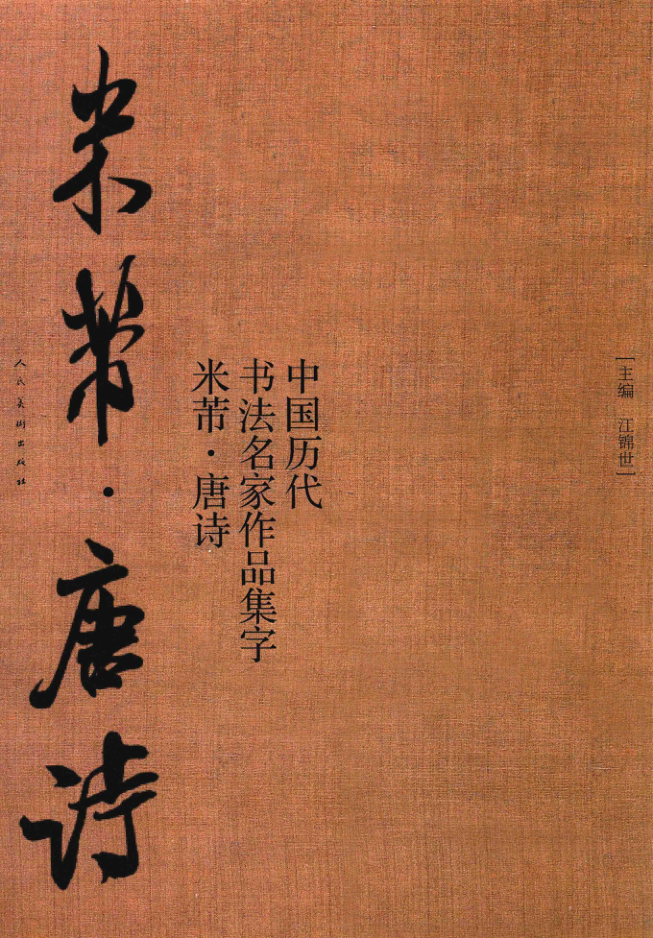 [主编 江锦世]
中国历代
书法名家作品集字
米芾·唐诗
米芾·唐诗
人民美术出版社